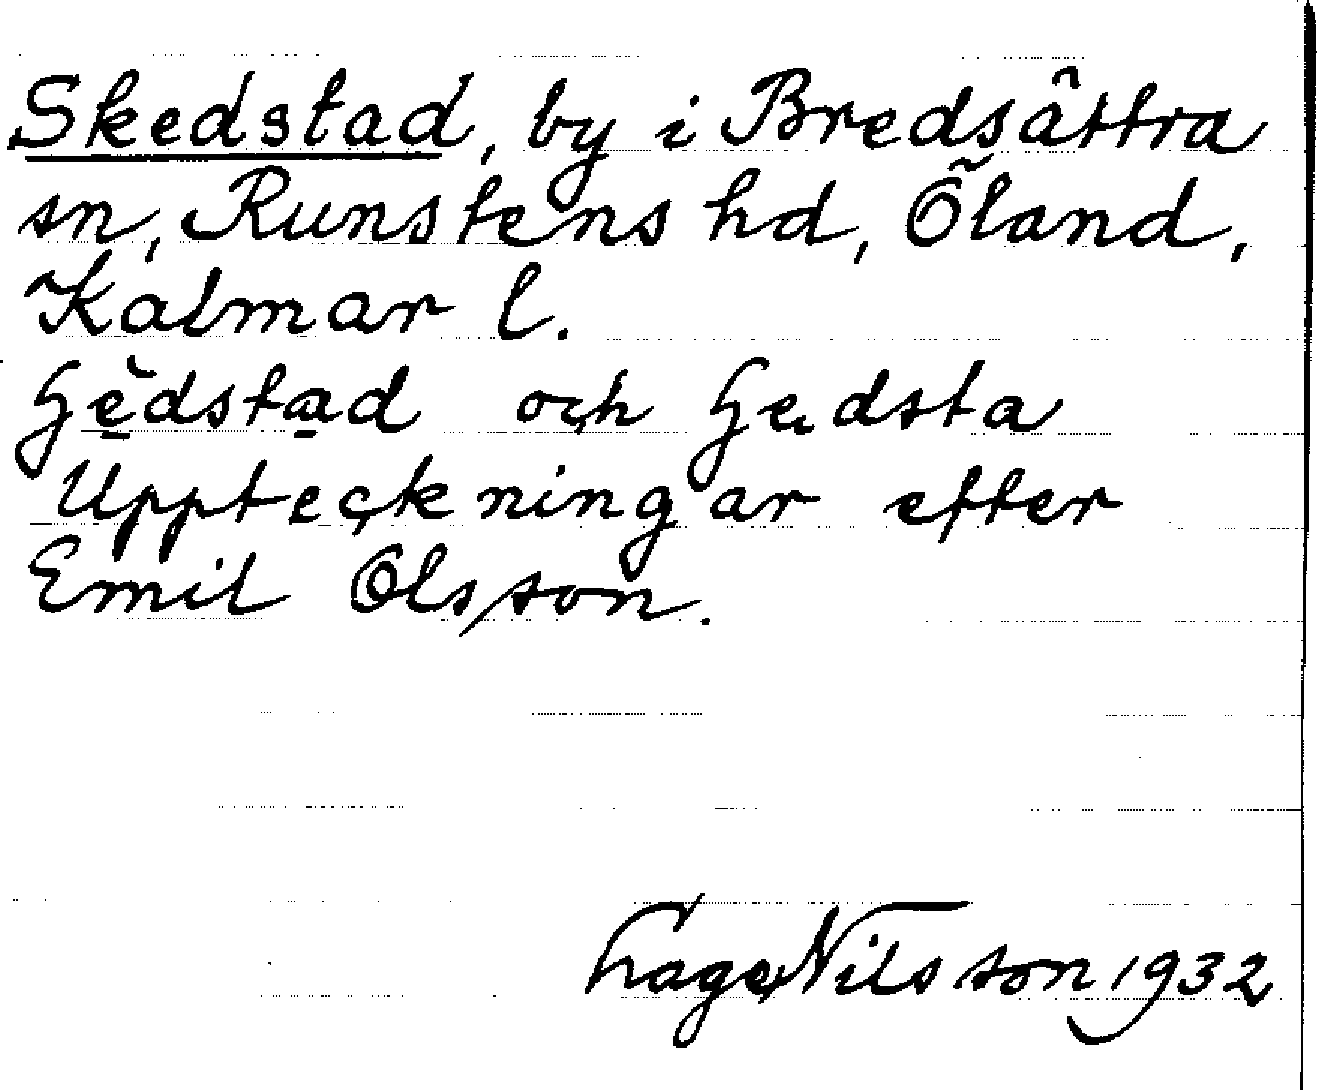 Skedstad, by i Bredsättra
sn, Runstens hd, Öland,
Kalmar l.
Gedstad och Gedsta
Uppteckningar efter
Emil Olsson.
Nilsson 1932